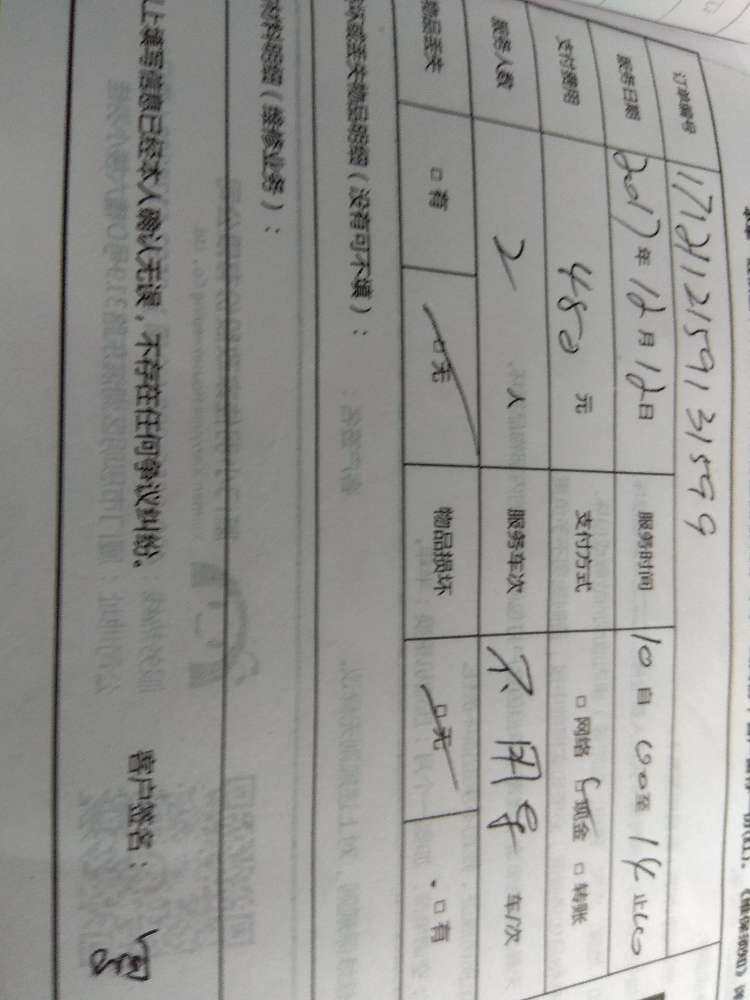 订单编号 1171212159131599
服务日期 2017年12月12日 服务时间 10自00至14止00
支付费用 480元 支付方式 □网络 □现金 □转账
服务人数 2人 服务车次 不用 车/次
物品丢失 □有 □无 物品损坏 □无 □有
坏或丢失物品明细（没有可不填）：
材料明细（维修业务）：
以上填写信息已经本人确认无误，不存在任何争议纠纷。 客户签名：